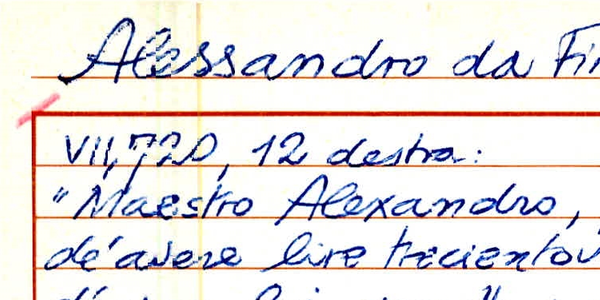 Alessandro da
VII, 720, 12 destra:
"Maestro Alexandro,
dé avere lire